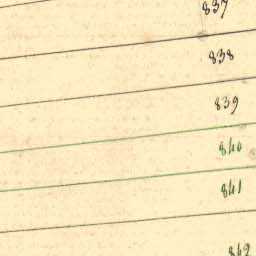 837
838
839
840
841
842